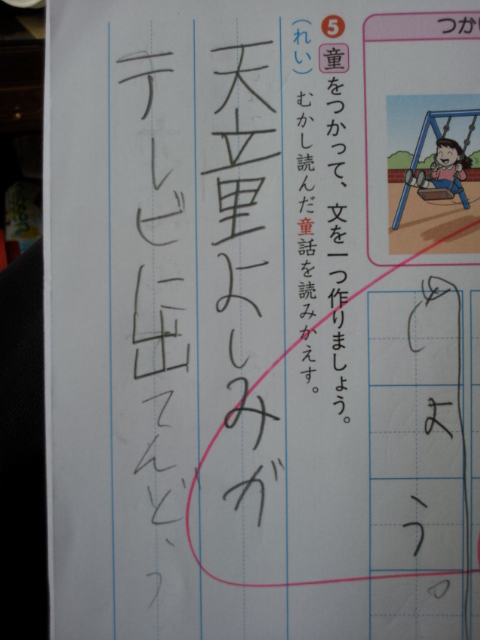 つかい
❺童をつかって、文を一つ作りましょう。
(れい) むかし読んだ童話を読みかえす。
しよう。
天童よしみが
テレビに出てんどう